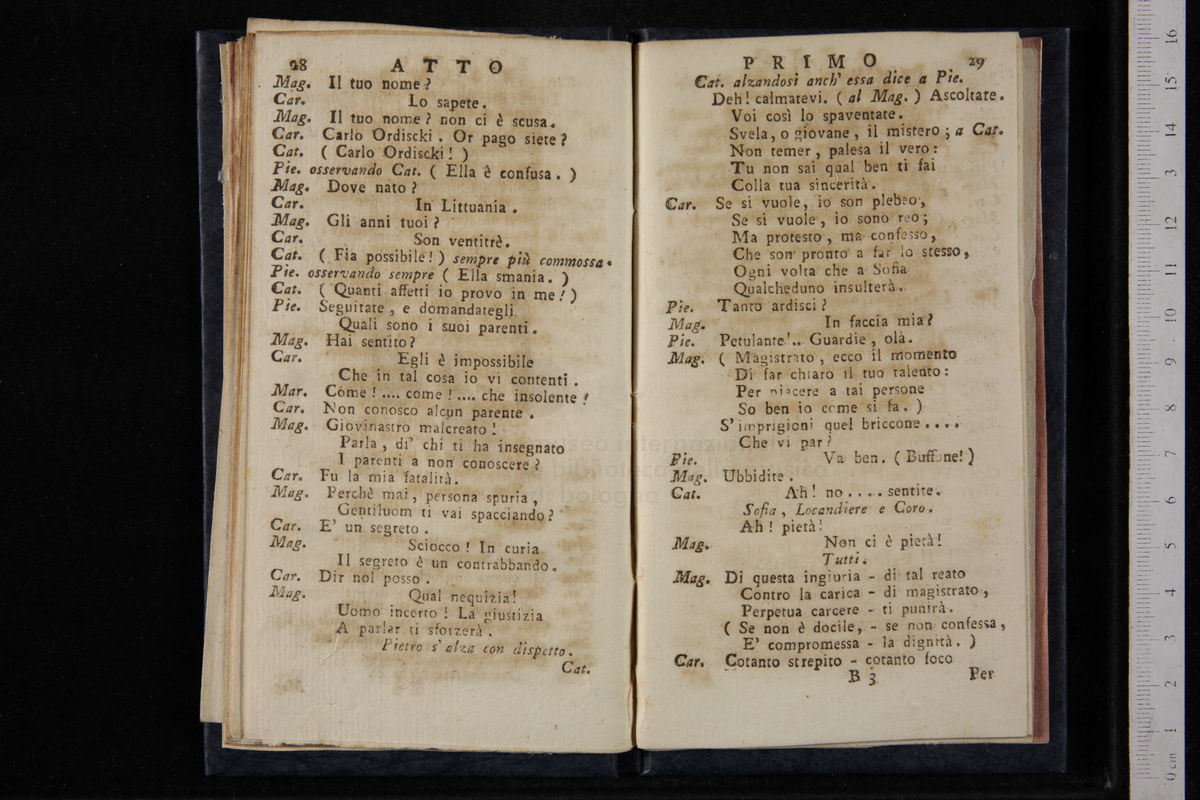 28 ATTO
Mag. Il tuo nome?
Car. Lo sapete.
Mag. Il tuo nome? non ci è scusa.
Car. Carlo Ordiscki. Or pago siete?
Cat. ( Carlo Ordiscki! )
Pie. osservando Cat. ( Ella è confusa. )
Mag. Dove nato?
Car. In Littuania.
Mag. Gli anni tuoi?
Car. Son ventitrè.
Cat. ( Fia possibile! ) sempre più commossa.
Pie. osservando sempre ( Ella smania. )
Cat. ( Quanti affetti io provo in me! )
Pie. Seguitate, e domandategli
Quali sono i suoi parenti.
Mag. Hai sentito?
Car. Egli è impossibile
Che in tal cosa io vi contenti.
Mar. Come!.... come!.... che insolente!
Car. Non conosco alcun parente.
Mag. Giovinastro malcreato!
Parla, di' chi ti ha insegnato
I parenti a non conoscere?
Car. Fu la mia fatalità.
Mag. Perchè mai, persona spuria,
Gentiluom ti vai spacciando?
Car. E' un segreto.
Mag. Sciocco! In curia
Il segreto è un contrabbando.
Car. Dir nol posso.
Mag. Qual nequizia!
Uomo incerto! La giustizia
A parlar ti sforzerà.
Pietro s' alza con dispetto.
Cat.
PRIMO 29
Cat. alzandosi anch' essa dice a Pie.
Deh! calmatevi. ( al Mag. ) Ascoltate.
Voi così lo spaventate.
Svela, o giovane, il mistero; a Cat.
Non temer, palesa il vero:
Tu non sai qual ben ti fai
Colla tua sincerità.
Car. Se si vuole, io son plebeo,
Se si vuole, io sono reo;
Ma protesto, ma confesso,
Che son pronto a far lo stesso,
Ogni volta che a Sofia
Qualcheduno insulterà.
Pie. Tanto ardisci?
Mag. In faccia mia?
Pie. Petulante!.. Guardie, olà.
Mag. ( Magistrato, ecco il momento
Di far chiaro il tuo talento:
Per piacere a tai persone
So ben io come si fa. )
S' imprigioni quel briccone....
Che vi par?
Pie. Va ben. ( Buffone! )
Mag. Ubbidite.
Cat. Ah! no.... sentite.
Sofia, Locandiere e Coro.
Ah! pietà!
Mag. Non ci è pietà!
Tutti.
Mag. Di questa ingiuria - di tal reato
Contro la carica - di magistrato,
Perpetua carcere - ti punirà.
( Se non è docile, - se non confessa,
E' compromessa - la dignità. )
Car. Cotanto strepito - cotanto foco
B 3 Per